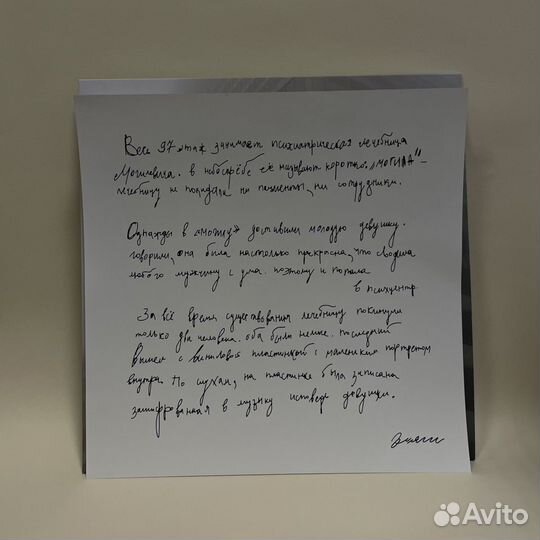 Весь 97 этаж занимает психиатрическая лечебница
Могилевича. в небоскрёбе её называют коротко „МОГИЛА"–
лечебницу не покидали ни пациенты, ни сотрудники.
Однажды в «могилу» доставили молодую девушку.
говорили, она была настолько прекрасна, что сводила
любого мужчину с ума. поэтому и попала
в психцентр.
За всё время существования лечебницу покинули
только два человека. оба были немые. последний
вышел с виниловой пластинкой с маленьким портретом
внутри. По слухам, на пластинке была записана
зашифрованная в музыку исповедь девушки.
Avito